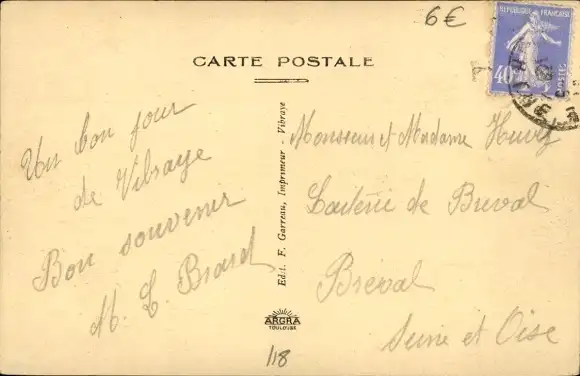 6€
REPUBLIQUE FRANÇAISE
40
POSTES
CARTE POSTALE
Un bon jour
de Vibraye
Bon souvenir
M. L. Brard
Edit. F. Garreau, Imprimeur - Vibraye
ARGRA
TOULOUSE
118
Monsieur et Madame
Laiterie de Breval
Bréval
Seine et Oise